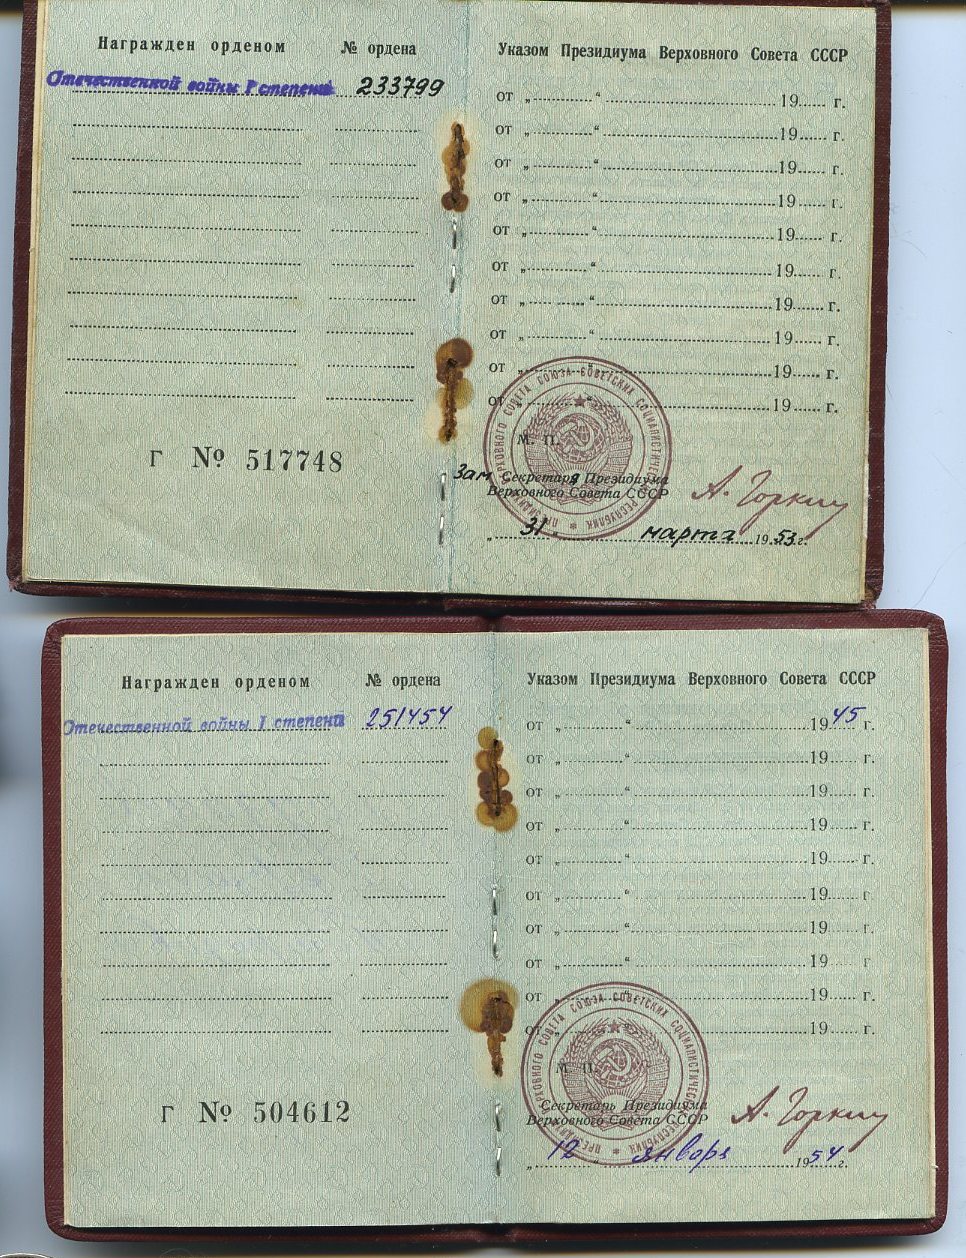 Награжден орденом № ордена
Отечественной войны I степени 233799
Г № 517748
Указом Президиума Верховного Совета СССР
от „ “ 19 г.
от „ “ 19 г.
от „ “ 19 г.
от „ “ 19 г.
от „ “ 19 г.
от „ “ 19 г.
от „ “ 19 г.
от „ “ 19 г.
от „ “ 19 г.
от „ “ 19 г.
М. П.
ПРЕЗИДИУМ ВЕРХОВНОГО СОВЕТА СОЮЗА СОВЕТСКИХ СОЦИАЛИСТИЧЕСКИХ РЕСПУБЛИК
Зам Секретаря Президиума
Верховного Совета СССР А. Горкин
„ 31 “ марта 1953 г.
Награжден орденом № ордена
Отечественной войны I степени 251454
Г № 504612
Указом Президиума Верховного Совета СССР
от „ “ 1945 г.
от „ “ 19 г.
от „ “ 19 г.
от „ “ 19 г.
от „ “ 19 г.
от „ “ 19 г.
от „ “ 19 г.
от „ “ 19 г
от „ “ 19 г.
от „ “ 19 г.
М. П.
ПРЕЗИДИУМ ВЕРХОВНОГО СОВЕТА СОЮЗА СОВЕТСКИХ СОЦИАЛИСТИЧЕСКИХ РЕСПУБЛИК
Секретарь Президиума
Верховного Совета СССР А. Горкин
„ 12 “ января 1954 г.